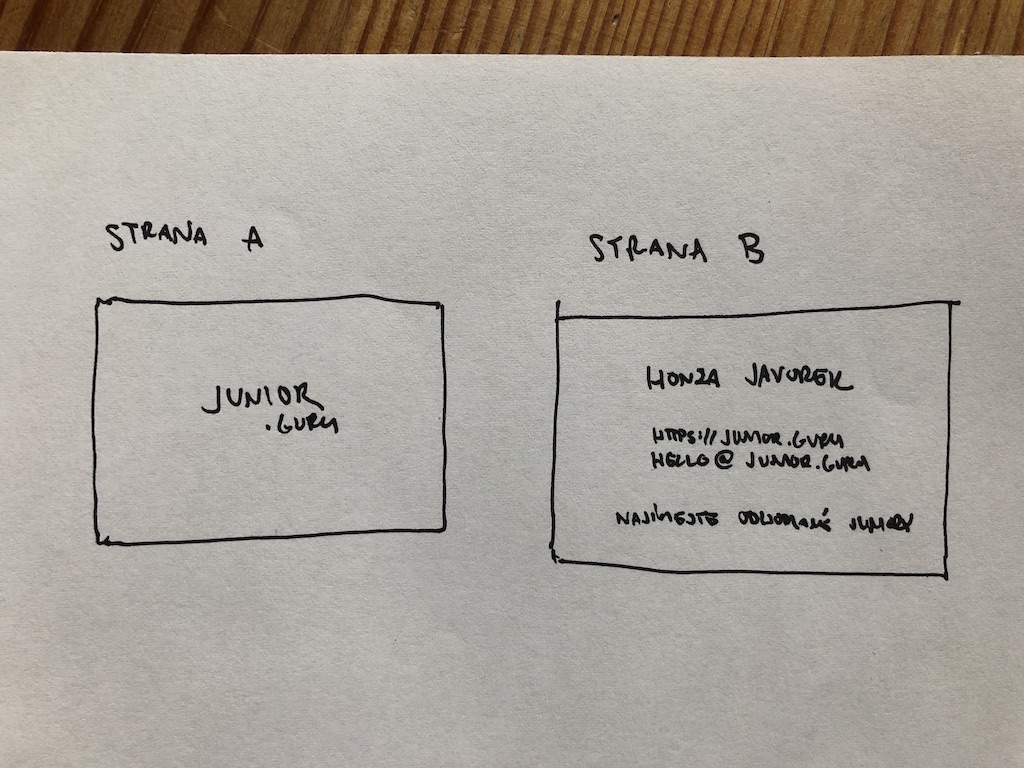 STRANA A
JUNIOR
.GURU
STRANA B
HONZA JAVOREK
HTTPS://JUNIOR.GURU
HELLO@JUNIOR.GURU
NAJÍMEJTE ODHODLANÉ JUNIORY